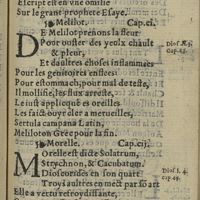 Escript est en vne omelie
Sur le grant prophete Esaye.
Melilot. Cap. ci.
DE Melilot prenons la fleur
Pour ouster des yeulx chault
& pleur,
Et d'aultres choses inflammees
Pour les genitoires enflees:
Pour estomach, pour mal de teste,
Il mollifie, les flux arreste,
Le iust applicqué es oreilles
Les faict ouyr cler a merueilles,
Sertula campana Latin,
Meliloton Grec pour la fin.
Morelle. Cap. cij.
MOrelle est dicte Solatrum,
Strychnon, & Cacubatum,
Dioscorides en son quart
Troys aultres en mect par so art
Elle a vertu refroydissante,
Diosc. 3.
cap. 43.
Diosc. l. 4.
cap. 64.